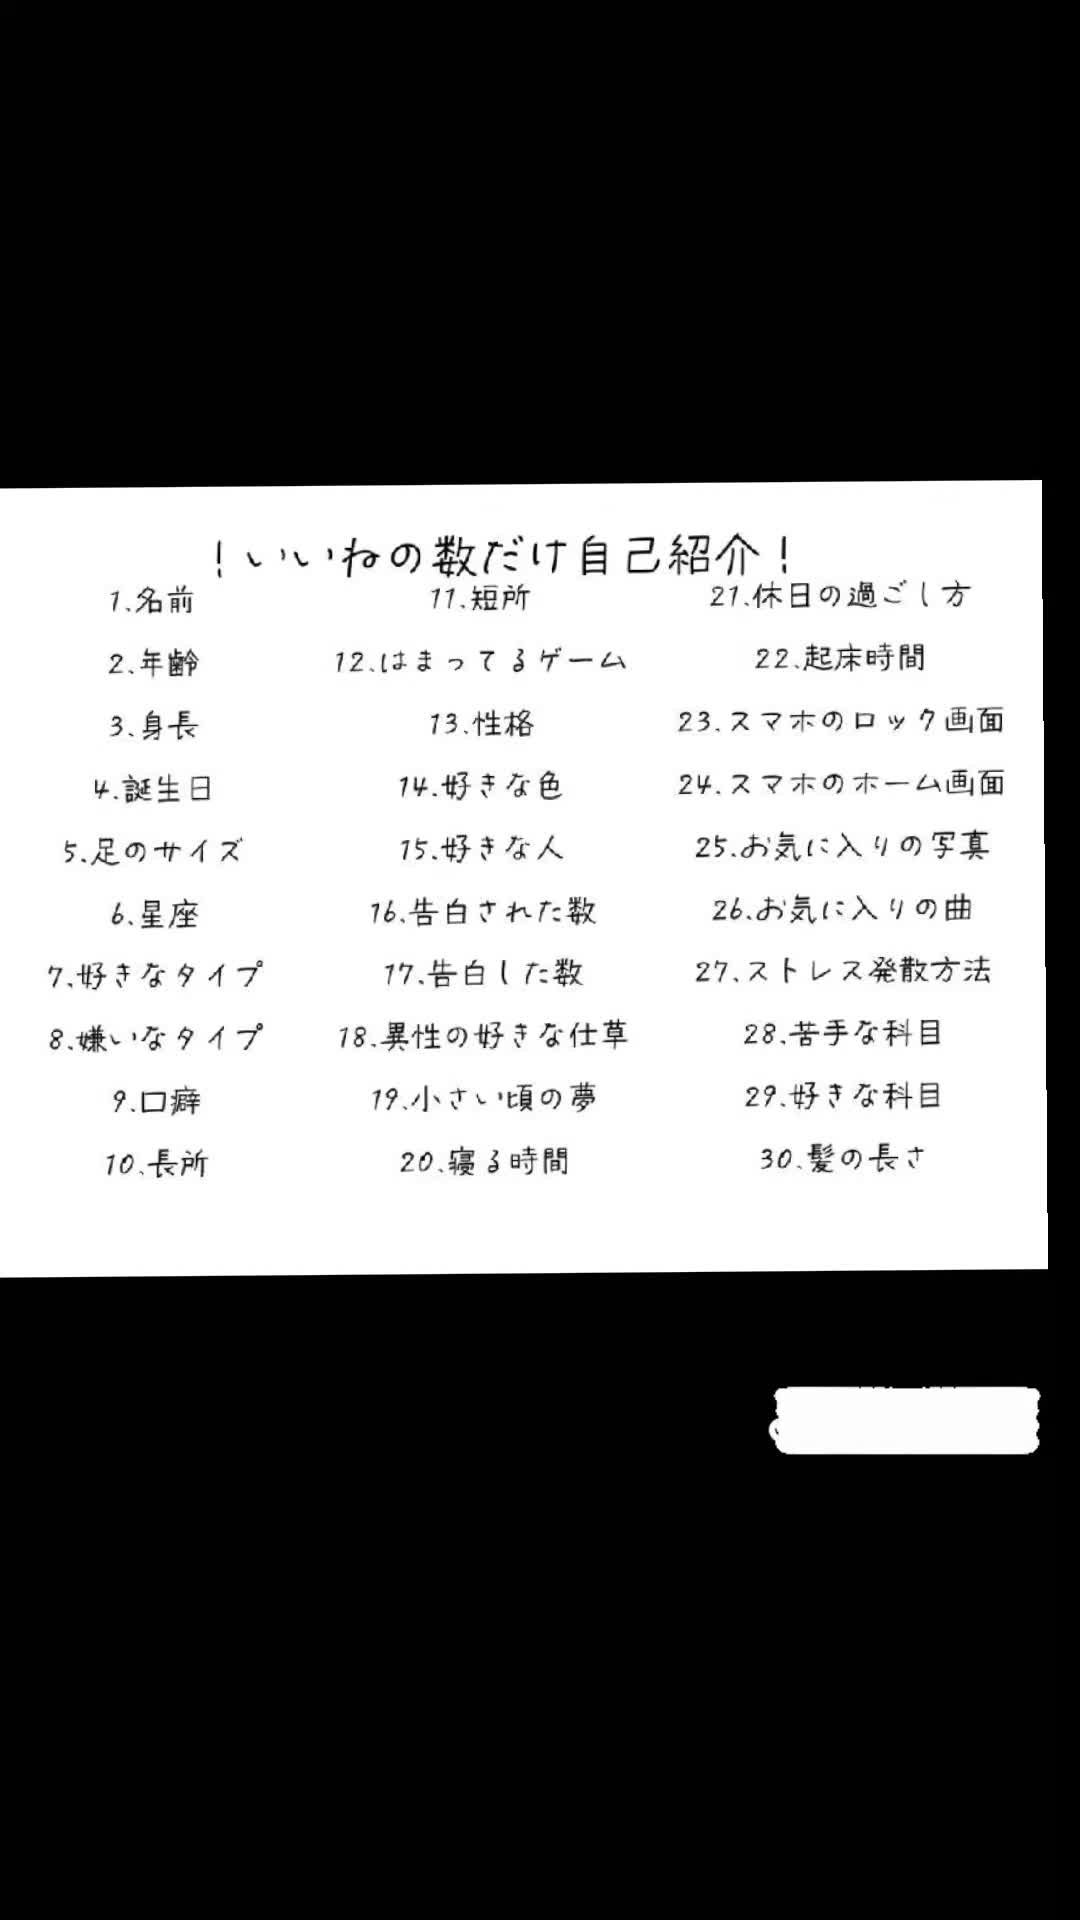 !いいねの数だけ自己紹介!
1.名前
2.年齢
3.身長
4.誕生日
5.足のサイズ
6.星座
7.好きなタイプ
8.嫌いなタイプ
9.口癖
10.長所
11.短所
12.はまってるゲーム
13.性格
14.好きな色
15.好きな人
16.告白された数
17.告白した数
18.異性の好きな仕草
19.小さい頃の夢
20.寝る時間
21.休日の過ごし方
22.起床時間
23.スマホのロック画面
24.スマホのホーム画面
25.お気に入りの写真
26.お気に入りの曲
27.ストレス発散方法
28.苦手な科目
29.好きな科目
30.髪の長さ